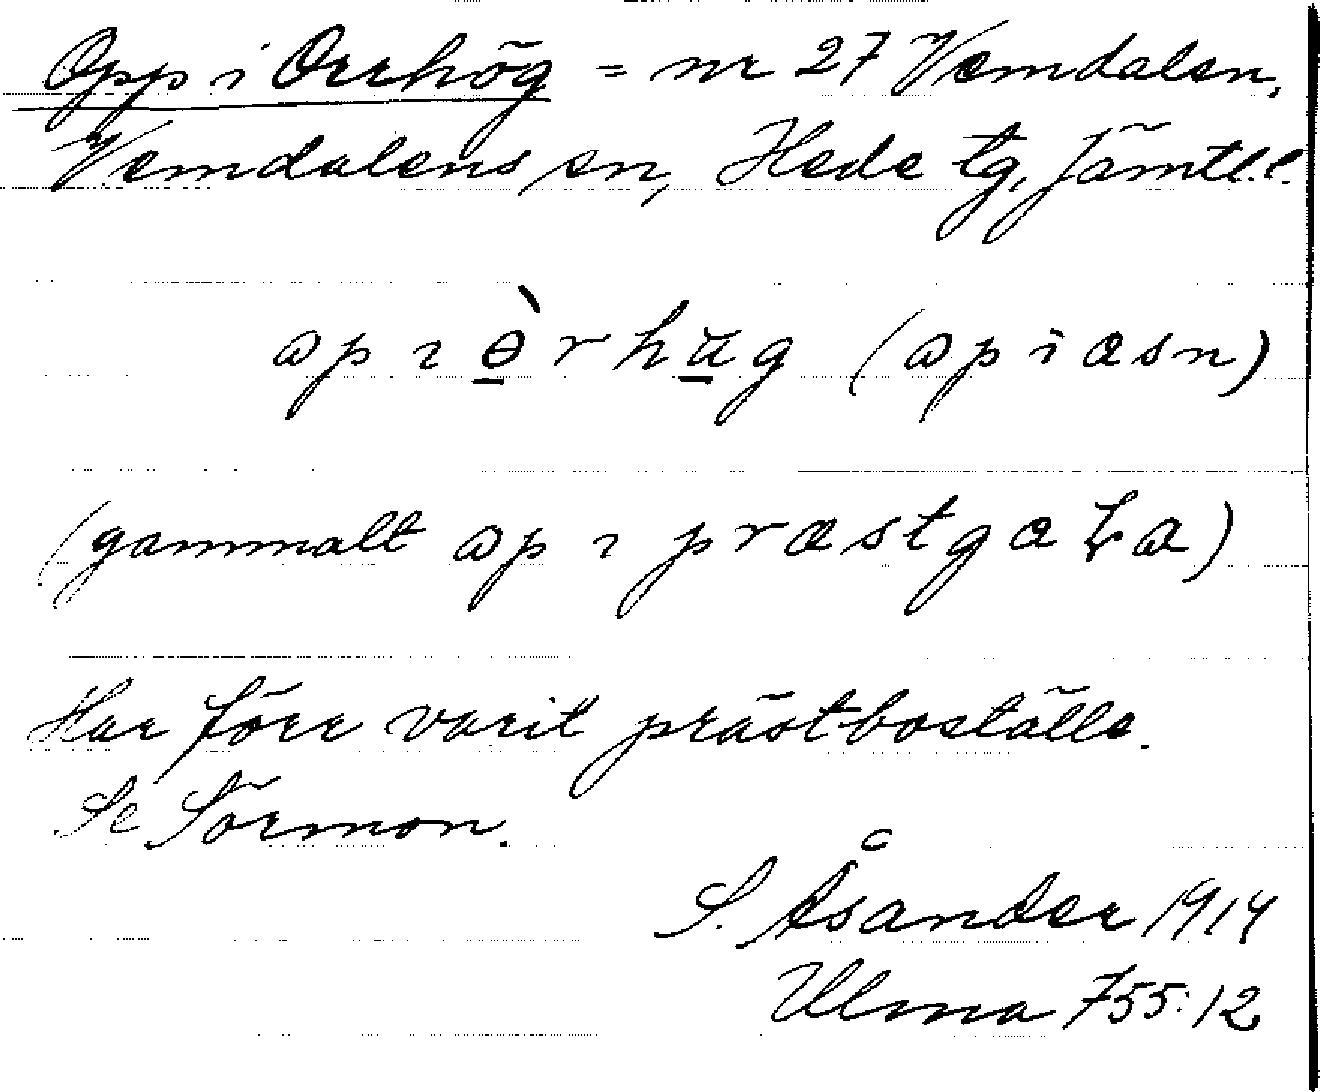 Opp i Orrhög = nr 27 Vemdalen,
Vemdalens sn, Hede tg, Jämtl.l.
ɷp ɩ ɵ̱̀r hu̱g (ɷp i æsn)
(gammalt ɷp ɩ præstgaƚɷ)
Har förr varit prästboställe.
Se Sörmon.
S. Åsander 1914
Ulma 755:12